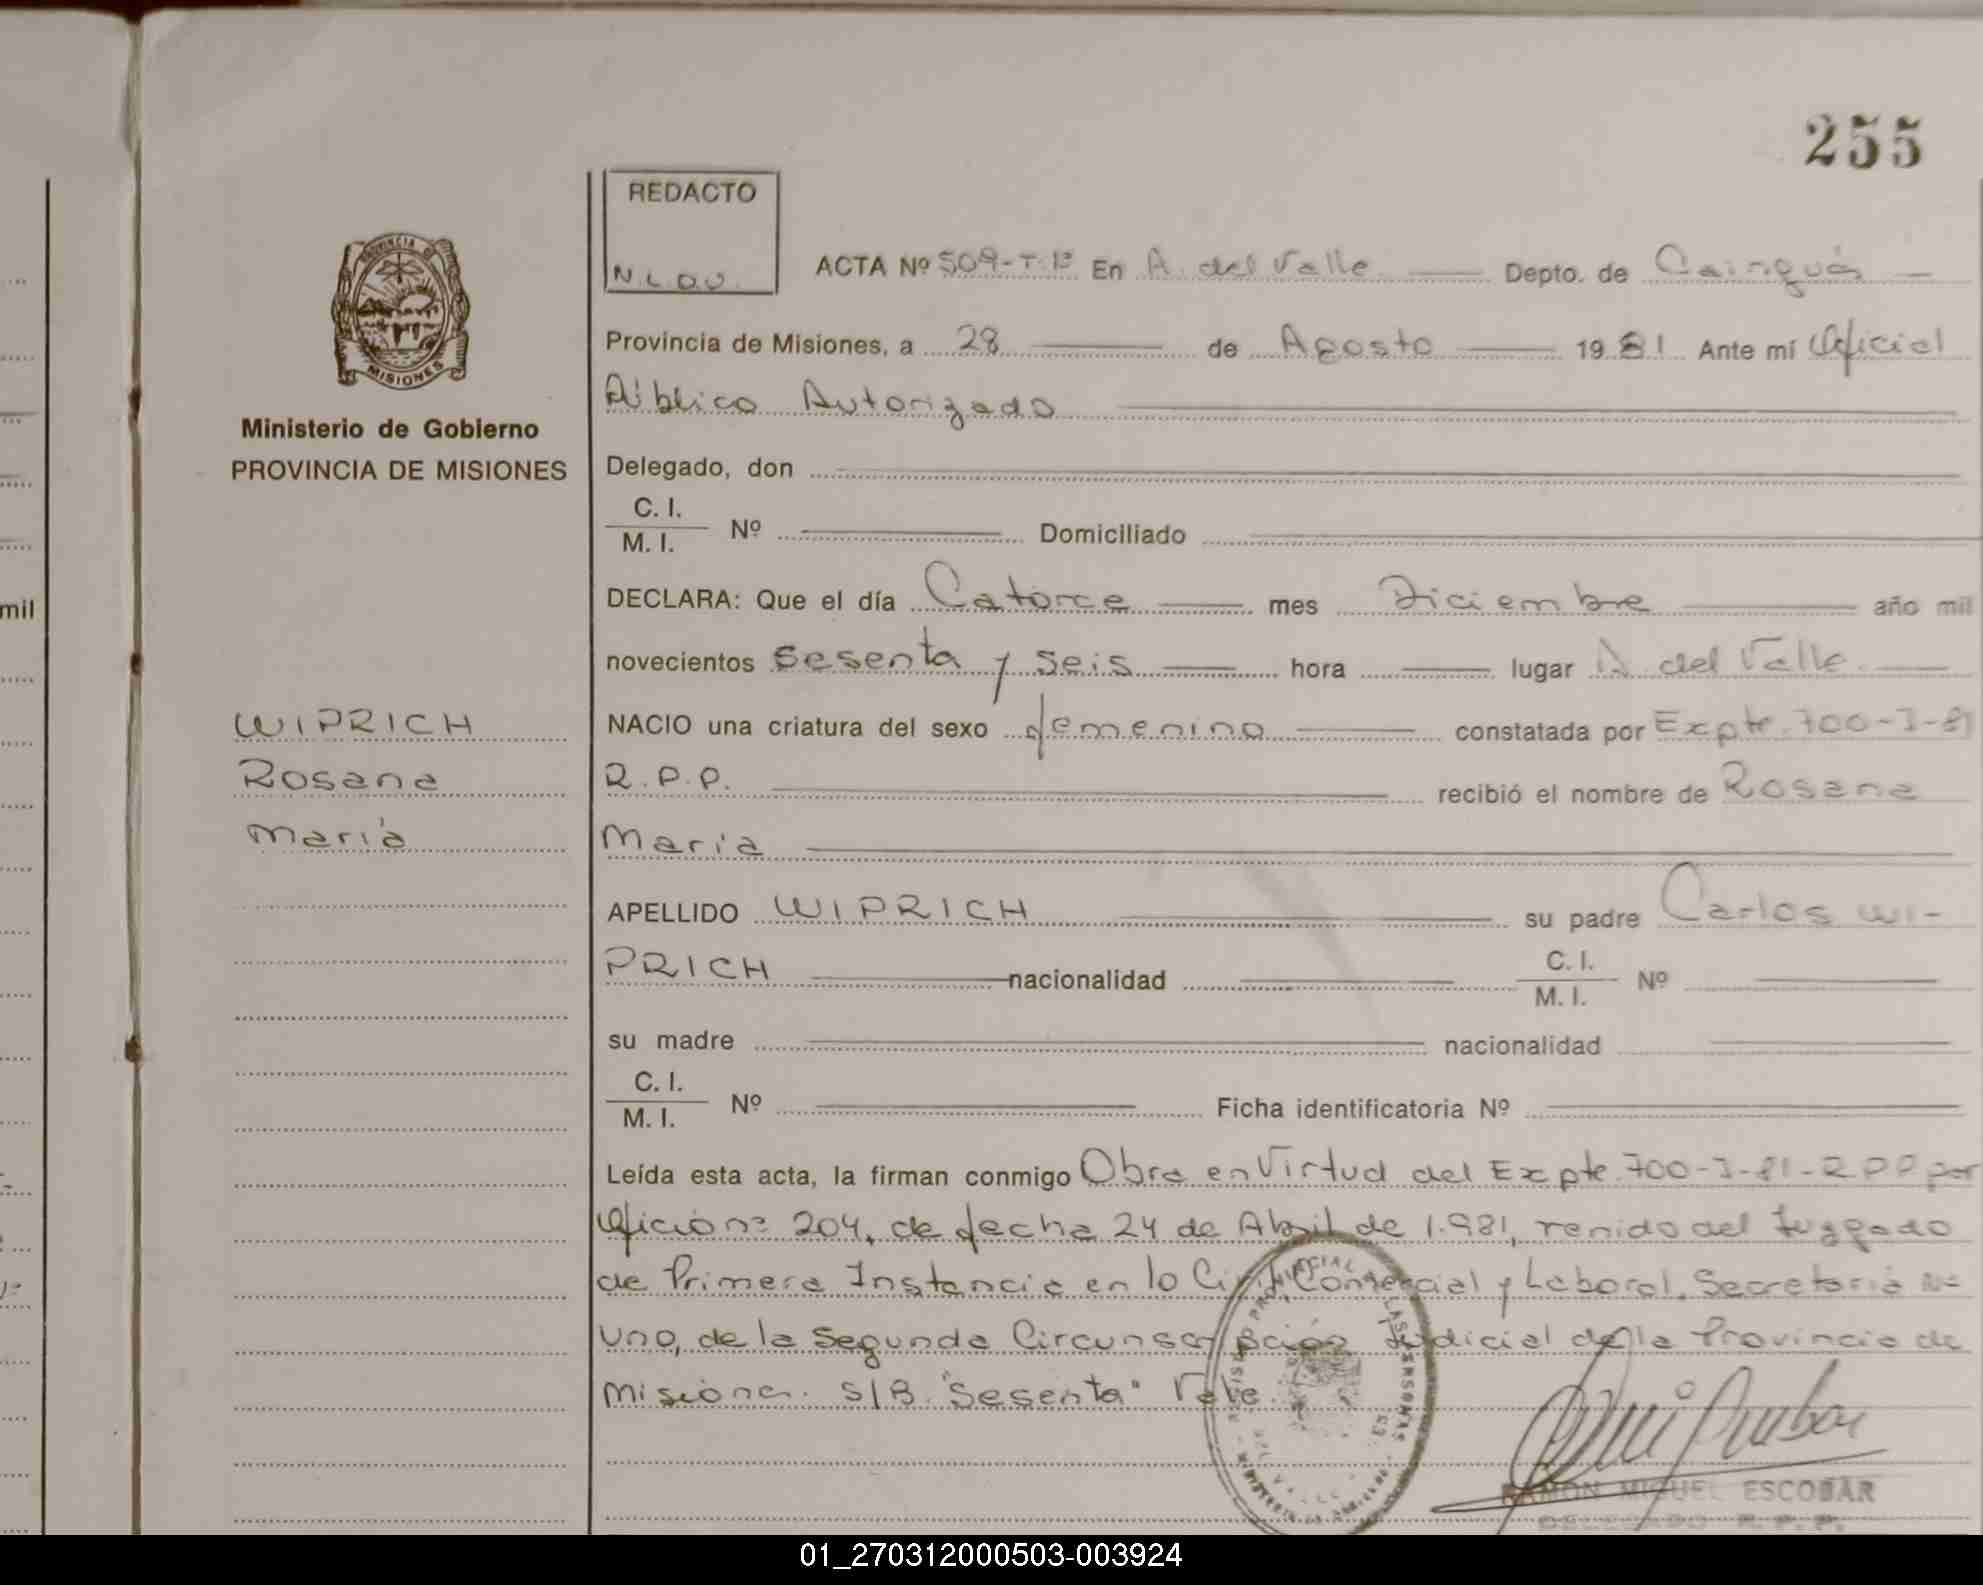 255
REDACTO
N.L.O.V.
ACTA Nº 509-T.1º En A. del Valle Depto. de Cainguás
Provincia de Misiones, a 28 de Agosto 1981 Ante mí Oficial
Público Autorizado
PROVINCIA DE
MISIONES
Ministerio de Gobierno
PROVINCIA DE MISIONES
Delegado, don
C. I.
M. I. Nº Domiciliado
DECLARA: Que el día Catorce mes Diciembre año mil
mil
novecientos sesenta y seis hora lugar A. del Valle
WIPRICH
Rosana
María
NACIO una criatura del sexo femenino constatada por Expte. 700-I-81
R.P.P. recibió el nombre de Rosana
María
APELLIDO WIPRICH su padre Carlos WI-
PRICH nacionalidad C. I. M. I. Nº
su madre nacionalidad
C. I.
M. I. Nº Ficha identificatoria Nº
Leída esta acta, la firman conmigo Obra en Virtud del Expte. 700-I-81-RPP por
Oficio nº 204, de fecha 24 de Abril de 1.981, renido del Juzgado
de Primera Instancia en lo Civil, Comercial y Laboral, Secretaría Nº
uno, de la Segunda Circunscripción Judicial de la Provincia de
Misiones. S/B. "Sesenta" Vale.
RAMON MIGUEL ESCOBAR
DELEGADO R.P.P.
01_270312000503-003924